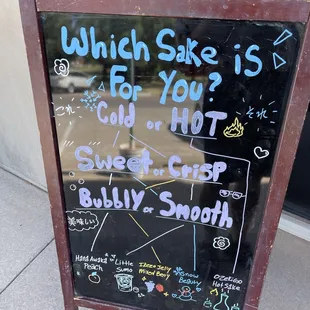 Which Sake is
For You?
Cold or HOT
これ
Sweet or Crisp
Bubbly or Smooth
美味しい
Hana Awaka
Peach
Little
Sumo
Ikezo Jelly
Mixed Berry
Snow
Beauty
Ozekino
Hot Sake